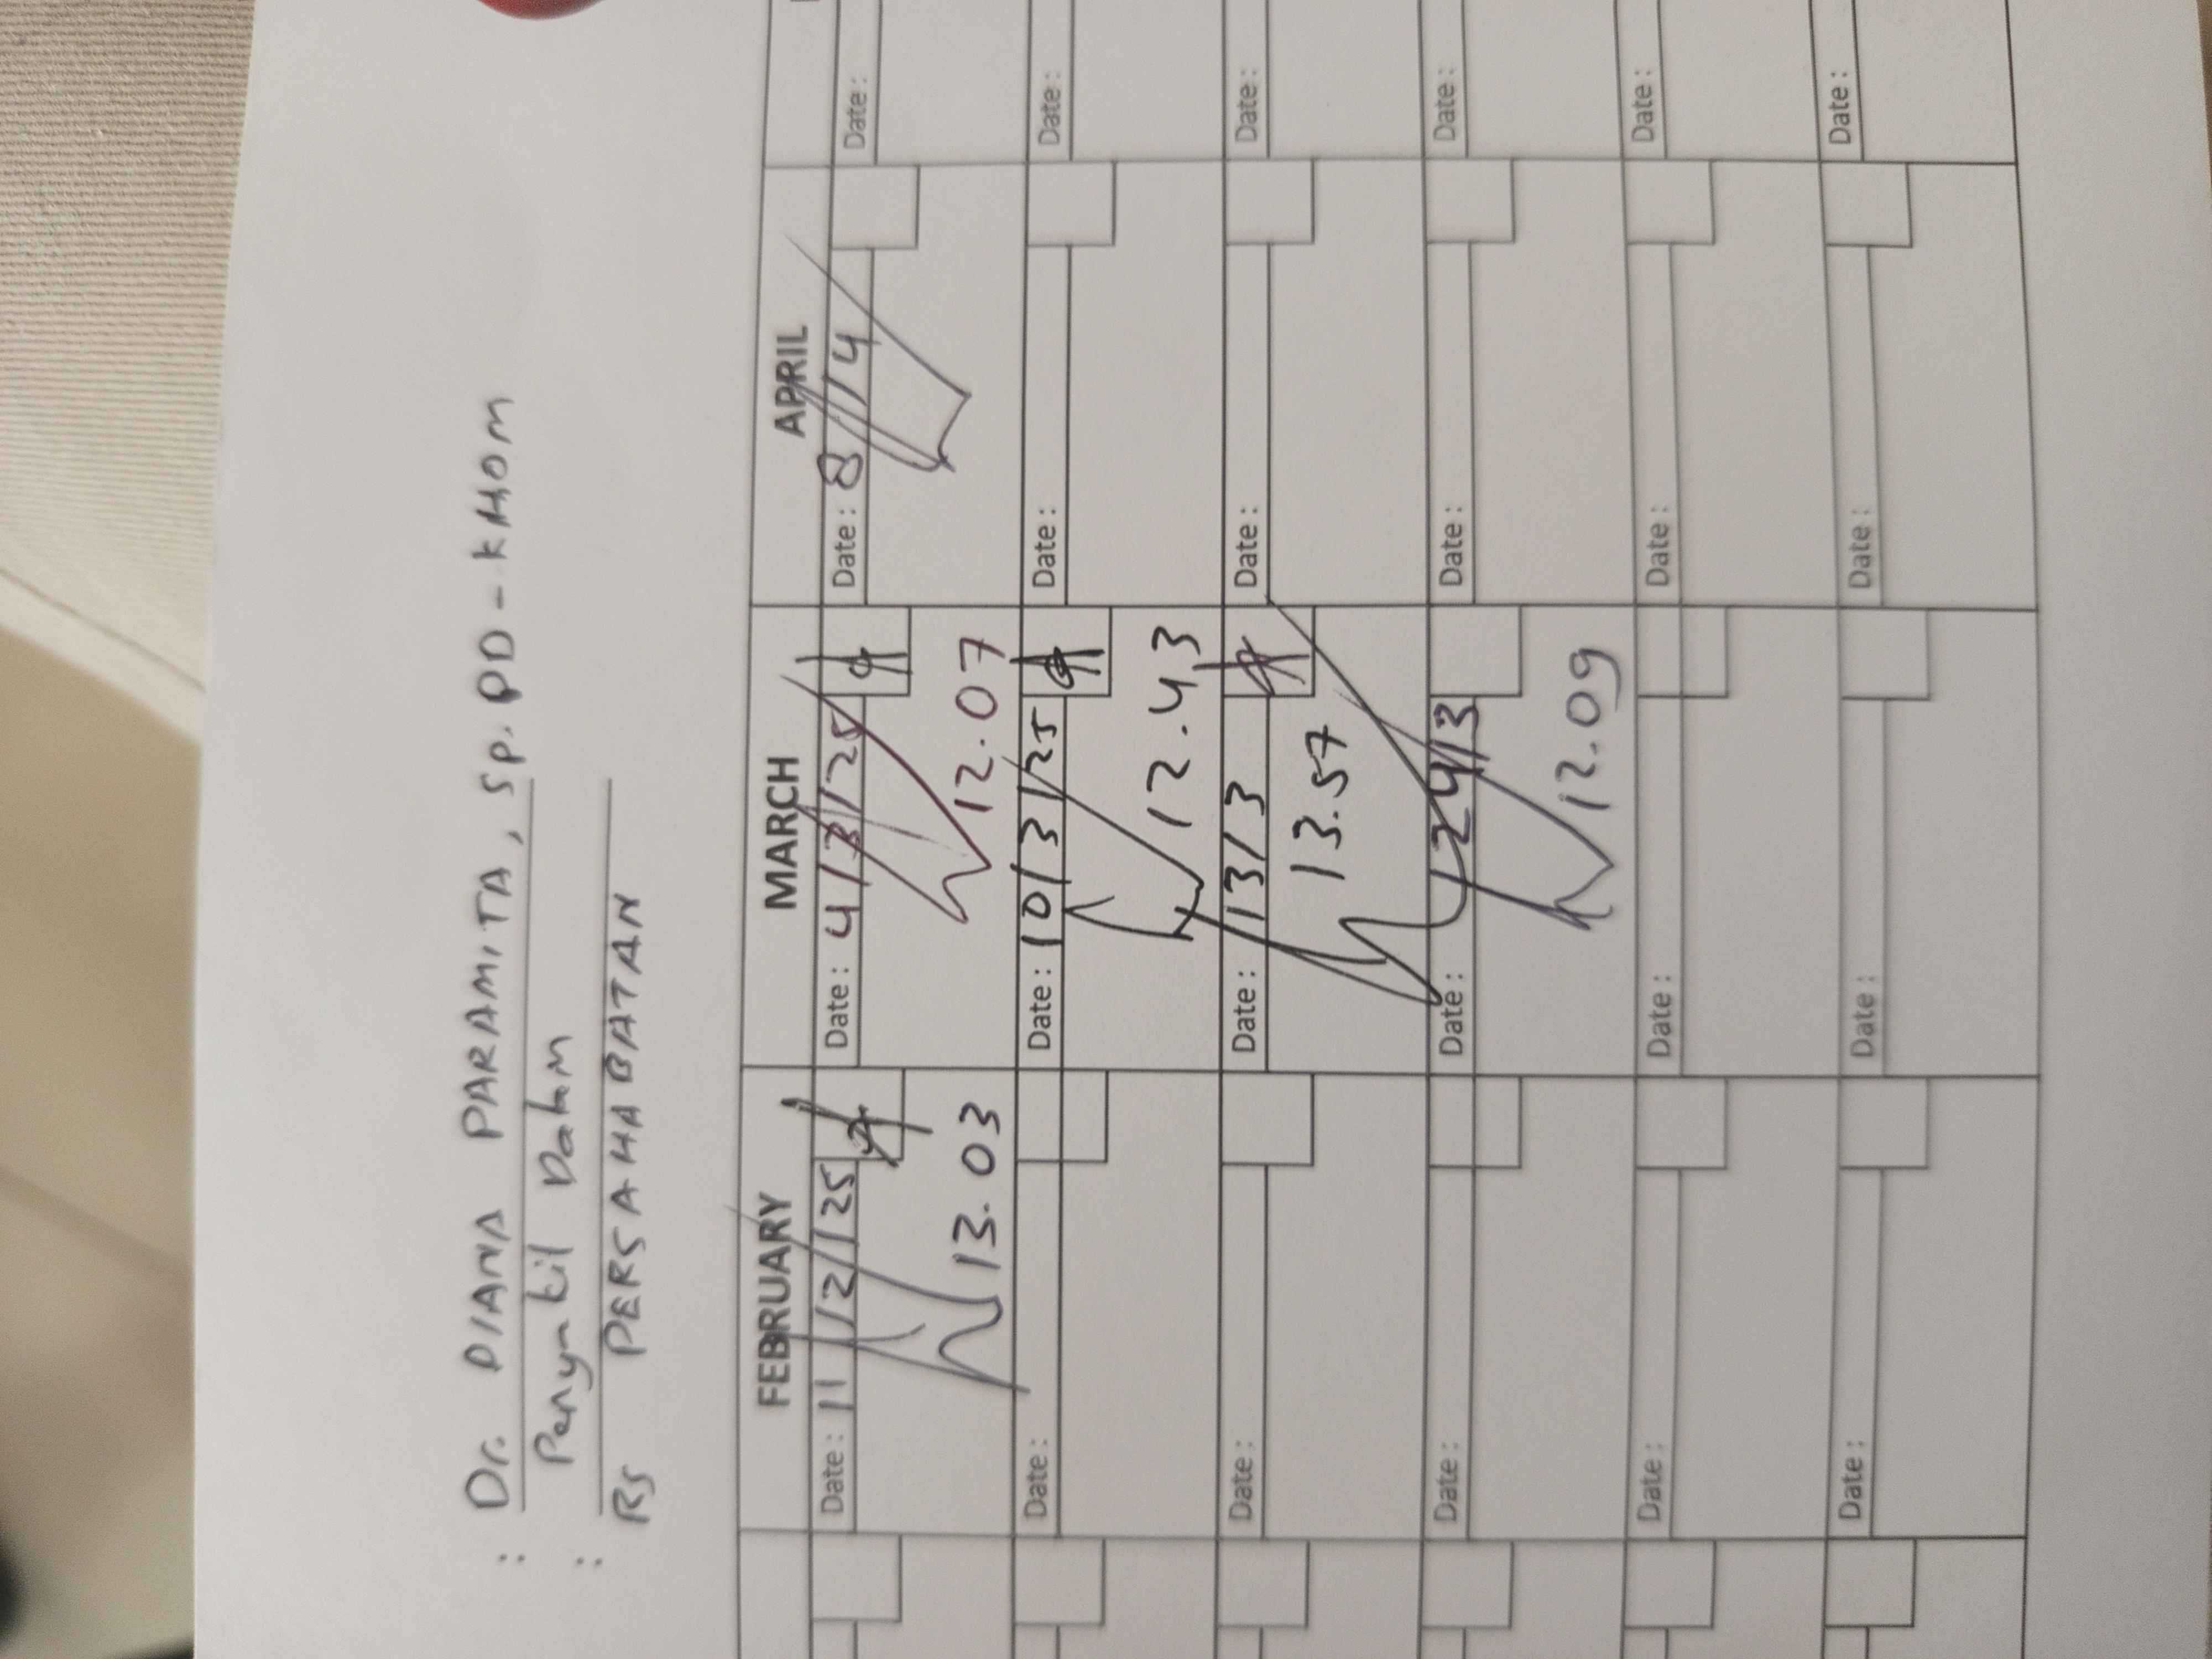 : Dr. DIANA PARAMITA, Sp.PD-KHOM
Penyakit Dalam
: RS PERSAHABATAN
FEBRUARY MARCH APRIL
Date: 11/2/25 Date: 4/3/25 Date: 8/4 Date:
13.03 12.07
Date: Date: 10/3/25 Date: Date:
12.43
Date: Date: 13/3 Date: Date:
13.57
Date: Date: 24/3 Date: Date:
12.09
Date: Date: Date: Date:
Date: Date: Date: Date: